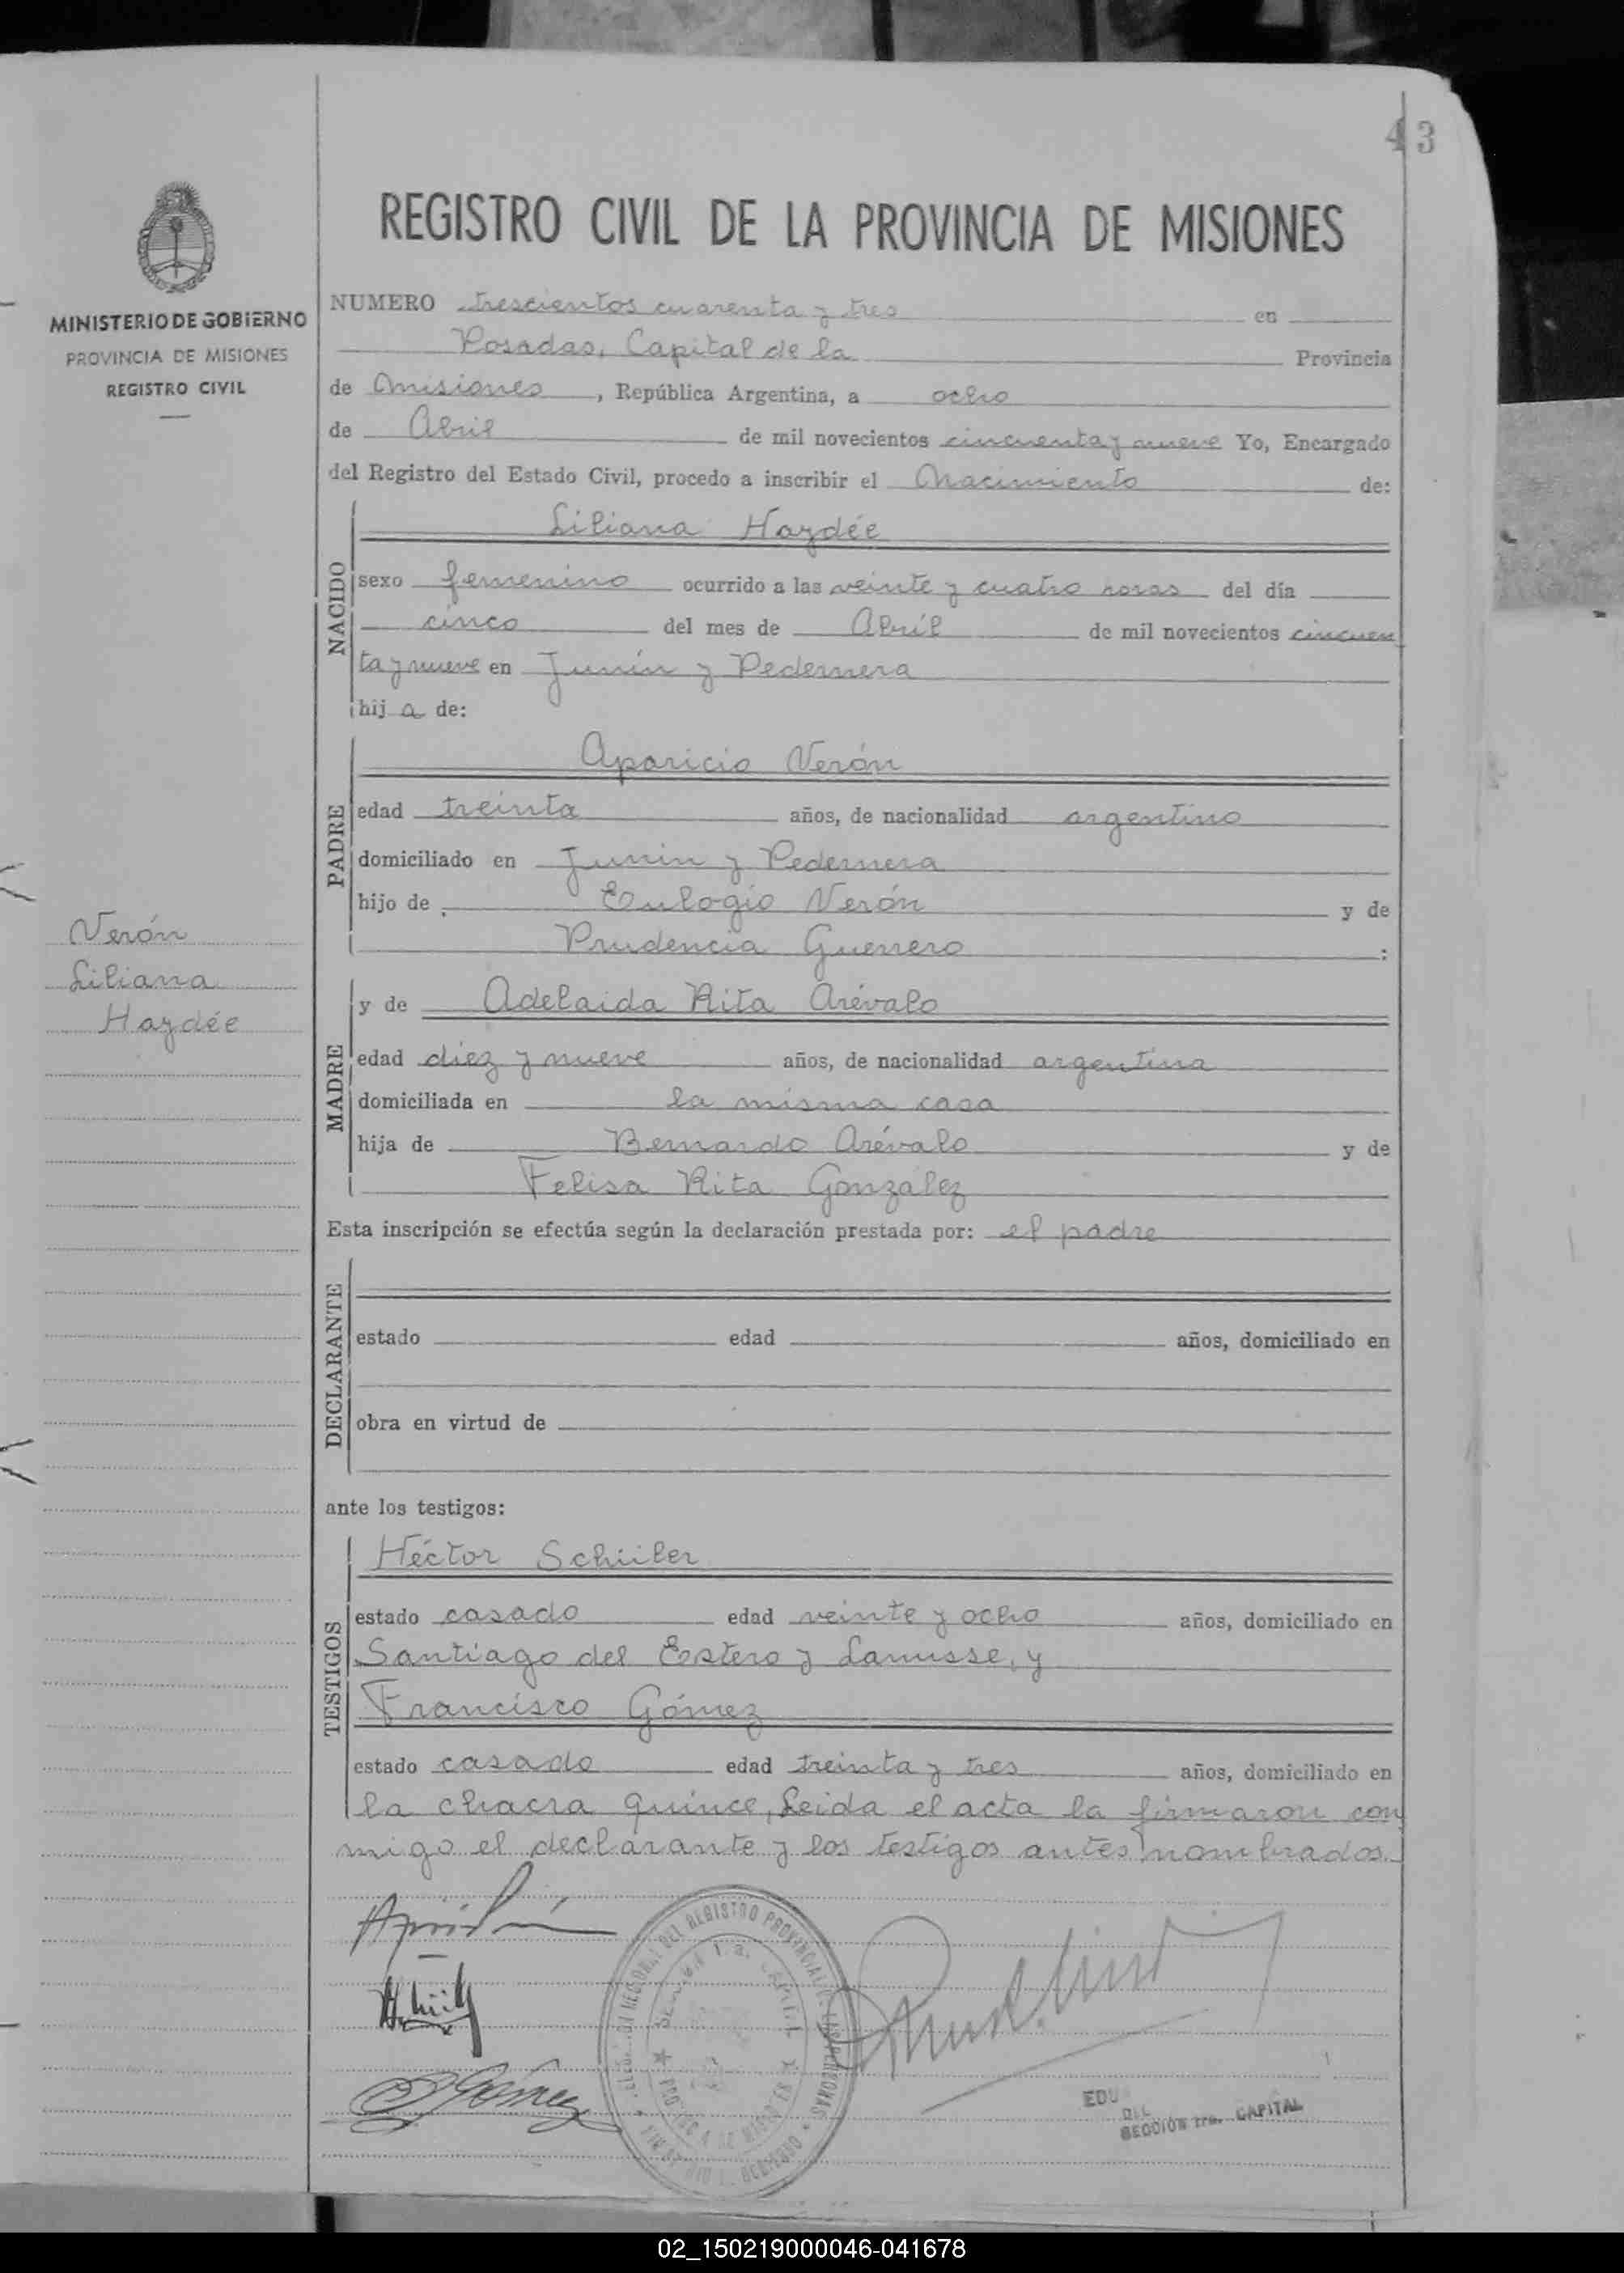 43
REGISTRO CIVIL DE LA PROVINCIA DE MISIONES
MINISTERIO DE GOBIERNO
PROVINCIA DE MISIONES
REGISTRO CIVIL
NUMERO trescientos cuarenta y tres en
Posadas, Capital de la Provincia
de Misiones, República Argentina, a ocho
de Abril de mil novecientos cincuenta y nueve Yo, Encargado
del Registro del Estado Civil, procedo a inscribir el Nacimiento de:
NACIDO
Liliana Haydée
sexo femenino ocurrido a las veinte y cuatro horas del día
cinco del mes de Abril de mil novecientos cincuen
ta y nueve en Junín y Pedernera
hij a de:
PADRE
Aparicio Verón
edad treinta años, de nacionalidad argentino
domiciliado en Junin y Pedernera
hijo de Eulogio Verón y de
Prudencia Guerrero :
Verón
Liliana
Haydée
MADRE
y de Adelaida Rita Arévalo
edad diez y nueve años, de nacionalidad argentina
domiciliada en la misma casa
hija de Bernardo Arévalo y de
Felisa Rita González
Esta inscripción se efectúa según la declaración prestada por: el padre
DECLARANTE
estado edad años, domiciliado en
obra en virtud de
ante los testigos:
TESTIGOS
Héctor Schüler
estado casado edad veinte y ocho años, domiciliado en
Santiago del Estero y Lanusse, y
Francisco Gómez
estado casado edad treinta y tres años, domiciliado en
la chacra quince, Leida el acta la firmaron con
migo el declarante y los testigos antes nombrados.
Gómez
REGISTRO PROVINCIAL
SECCIÓN 1ra. CAPITAL
02_150219000046-041678